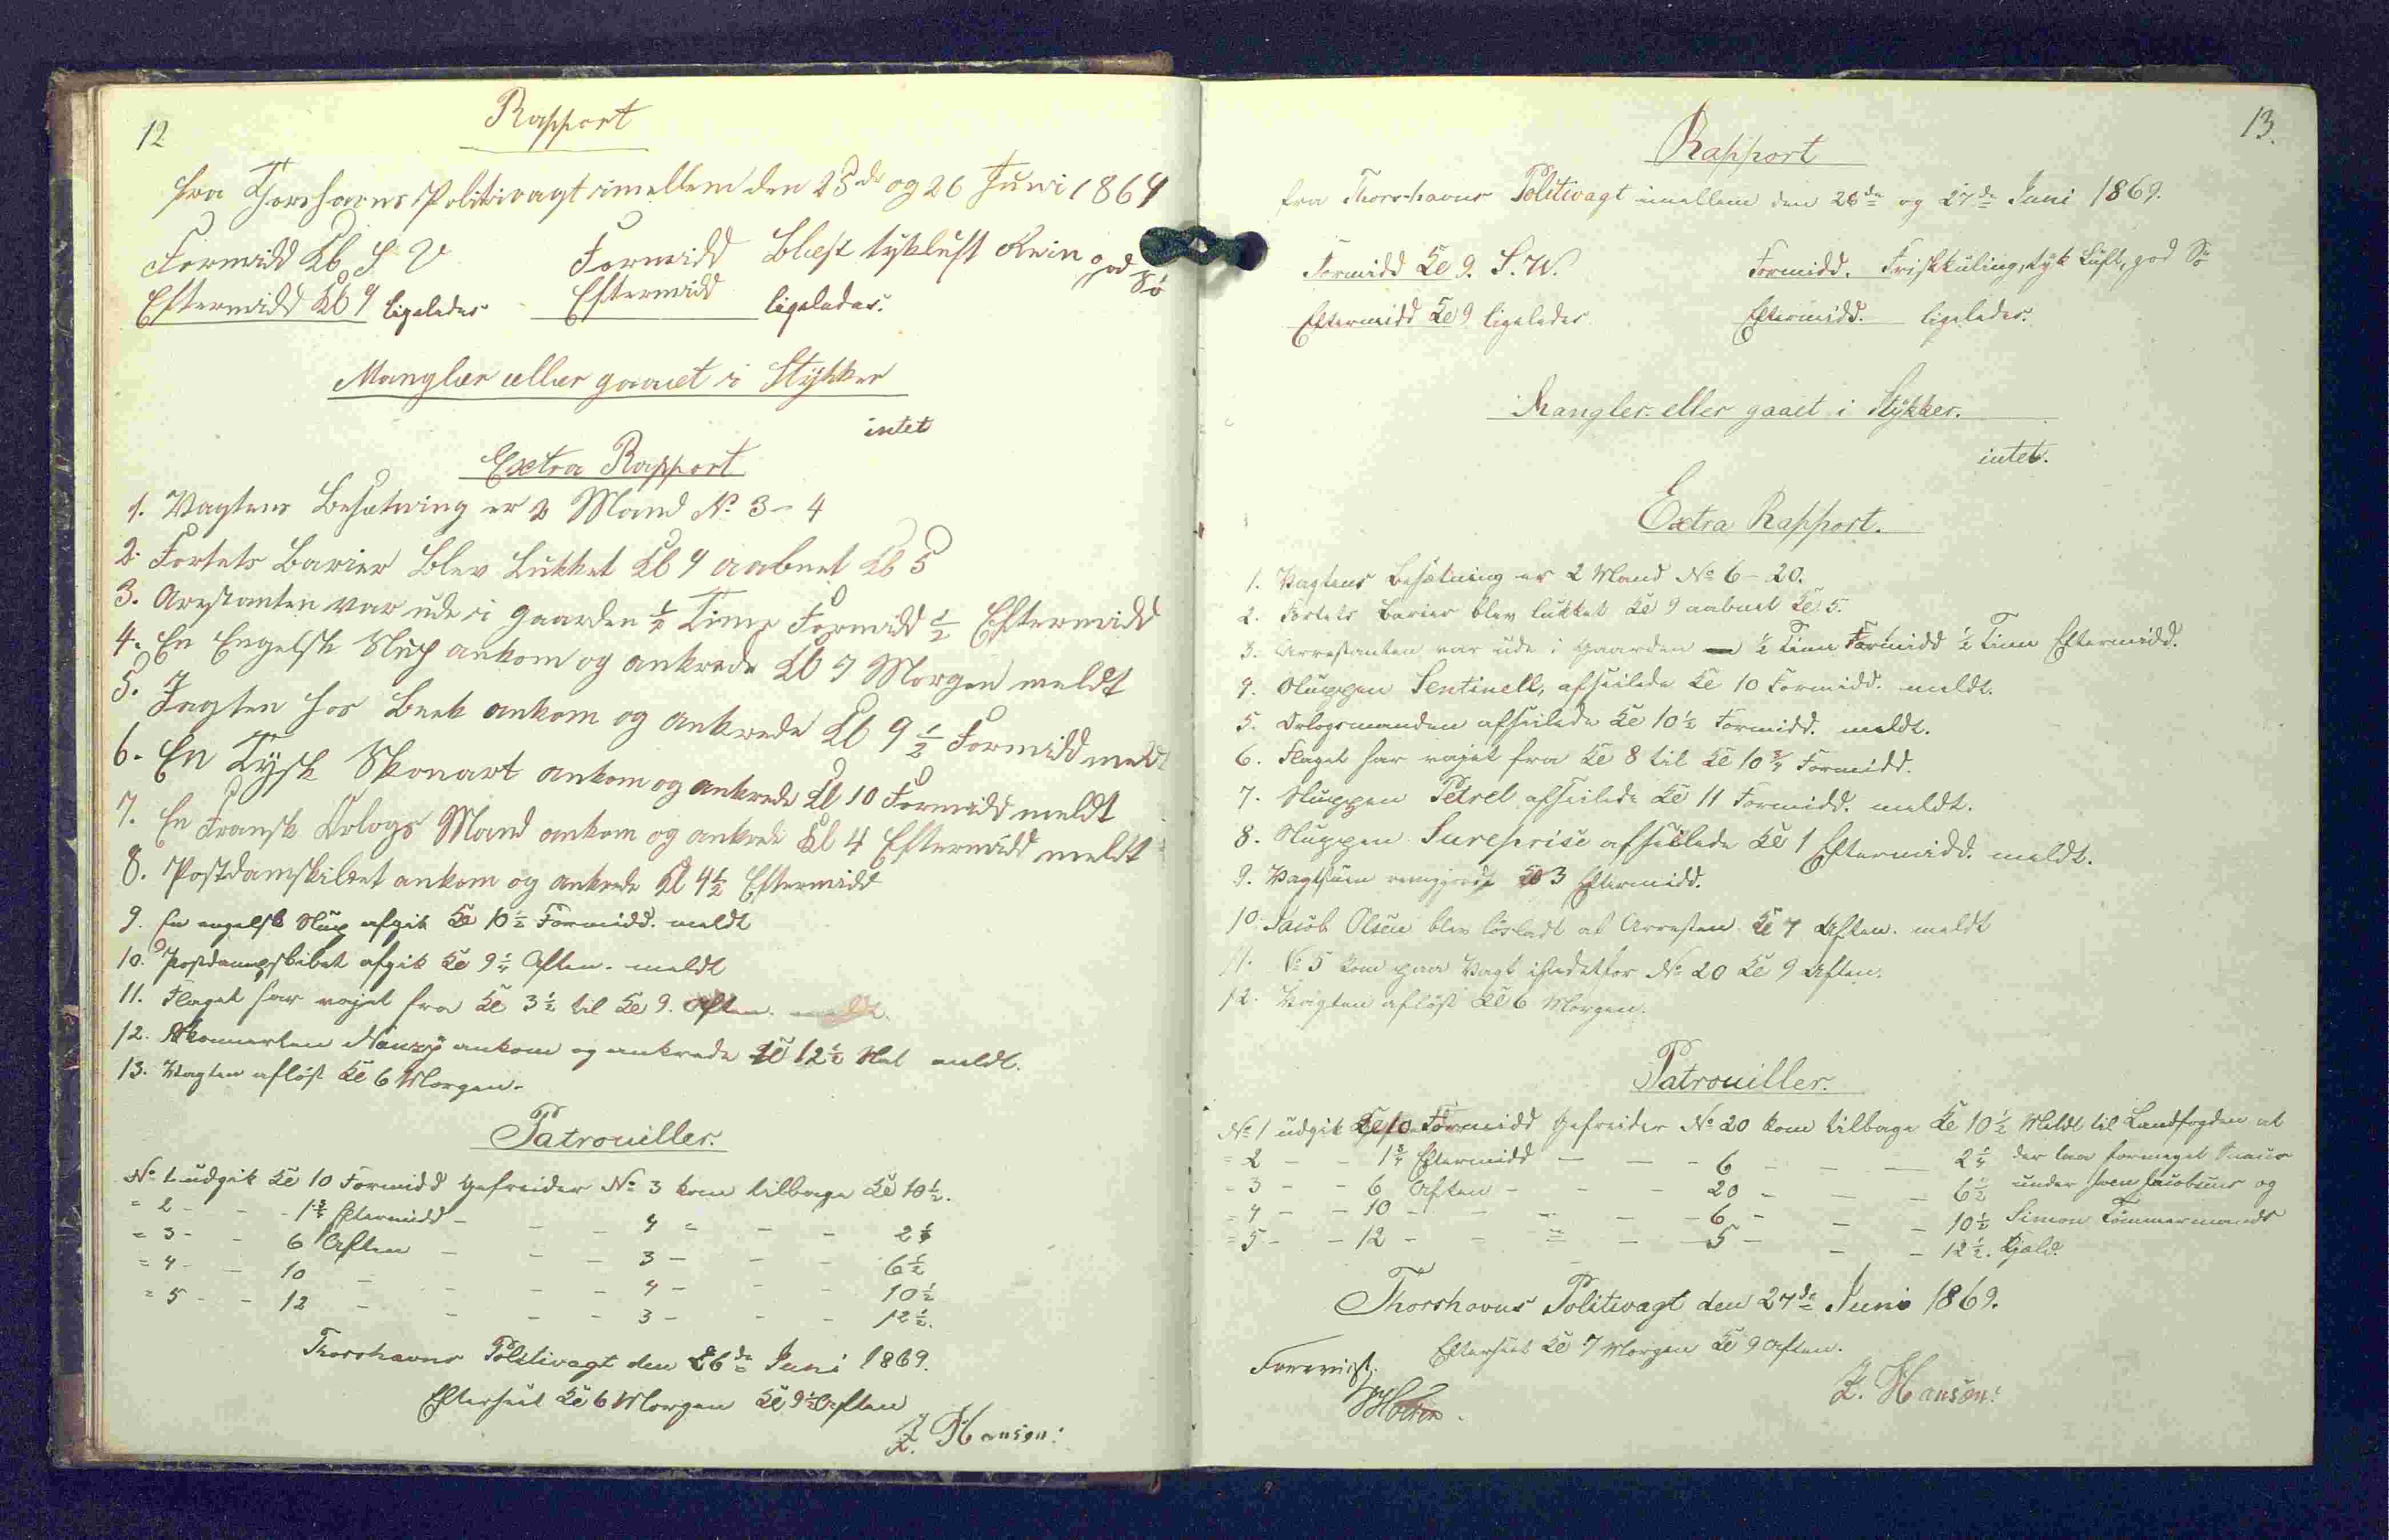 12
Rapport
fra Thorshavns Politivagt imellem den 25de og 26 Juni 1869
Formidd Kl 9 S V Formidd Blæst tykluft Rein god Sö
Eftermidd Kl 9 ligeledes Eftermidd ligeledes.
Manglær ællær gaaet i Stýkker
intet
Extra Rapport
1. Vagtens Besætning er 2 Mand No 3 - 4
2. Fortets Barier Blev Lukket Kl 9 aabnet Kl 5
3. Arestanten var ude i gaarden ½ Time Formidd ½ Eftermidd
4. En Engelsk Slup ankom og ankrede Kl 7 Morgen meldt
5. Jagten hos Beek ankom og ankrede Kl 9 ½ Formidd meldt
6. En Tysk Skonart ankom og ankrede Kl 10 Formidd meldt
7. En Fransk Orlogs Mand ankom og ankrede Kl 4 Eftermidd meldt
8. Postdamskibet ankom og ankrede Kl 4½ Eftermidd
9. En engelsk Slup afgik Kl 10½ Formidd. meldt
10. Postdampskibet afgik Kl 9¼ Aften. meldt
11. Flaget har vajet fra Kl 3½ til Kl 9. Aften. meldt.
12. Skonnerten Nancy ankom og ankrede Kl 12½ Nat meldt.
13. Vagten aflöst Kl 6 Morgen.
Patrouiller.
No 1 udgik Kl 10 Formidd Gefreider No 3 kom tilbage Kl 10½.
= 2 - - 1¾ Eftermidd - - - 4 = - - 2¼
= 3 - - 6 Aften - - - 3 - - - 6½
= 4 - - 10 - - - - 4 - - - 10½
= 5 - - 12 - - - - 3 - - - 12½.
Thorshavns Politivagt den 26de Juni 1869.
Efterseet Kl 6 Morgen Kl 9½ Aften
Z. Hanson.
13.
Rapport
fra Thorshavns Politivagt imellem den 26de og 27de Juni 1869.
Formidd Kl 9. S.W. Formidd. Friskkuling, tyk Luft, god Sö
Eftermidd Kl 9 ligeledes Eftermidd. ligeledes.
Mangler eller gaaet i Stýkker.
intet.
Extra Rapport.
1. Vagtens Besætning er 2 Mand No 6 - 20.
2. Fortets Barier blev lukket Kl 9 aabnet Kl 5.
3. Arrestanten var ude i Gaarden ½ Time Formidd ½ Time Eftermidd.
4. Sluppen Sentinell, afseilede Kl 10 Formidd. meldt.
5. Orlogsmanden afseilede Kl 10½ Formidd. meldt.
6. Flaget har vajet fra Kl 8 til Kl 10¾ Formidd.
7. Sluppen Petrel afseilede Kl 11 Formidd. meldt.
8. Sluppen Sureprise afseilede Kl 1 Eftermidd. meldt.
9. Vagtstuen reengjordt Kl 3 Eftermidd.
10. Jacob Olsen blev lösladt af Arresten Kl 7 Aften. meldt
11. No 5 kom paa Vagt istedetfor No 20 Kl 9 Aften.
12. Vagten aflöst Kl 6 Morgen.
Patrouiller.
No 1 udgik Kl 10 Formidd Gefreider No 20 kom tilbage Kl 10½ Meldt til Landfogden at
= 2 - - 1¾ Eftermidd - - - 6 - - - 2¼ der laa formeget
= 3 - - 6 Aften - - - 20 - - - 6½ under Jacobsens og
= 4 - - 10 - - - - 6 - - - 10½ Simon Tömmermands
= 5 - - 12 - - = - 5 - - - 12½. Kjæld.
Thorshavns Politivagt den 27de Juni 1869.
Efterseet Kl 7 Morgen Kl 9 Aften.
Forevist.
Z. Hanson.